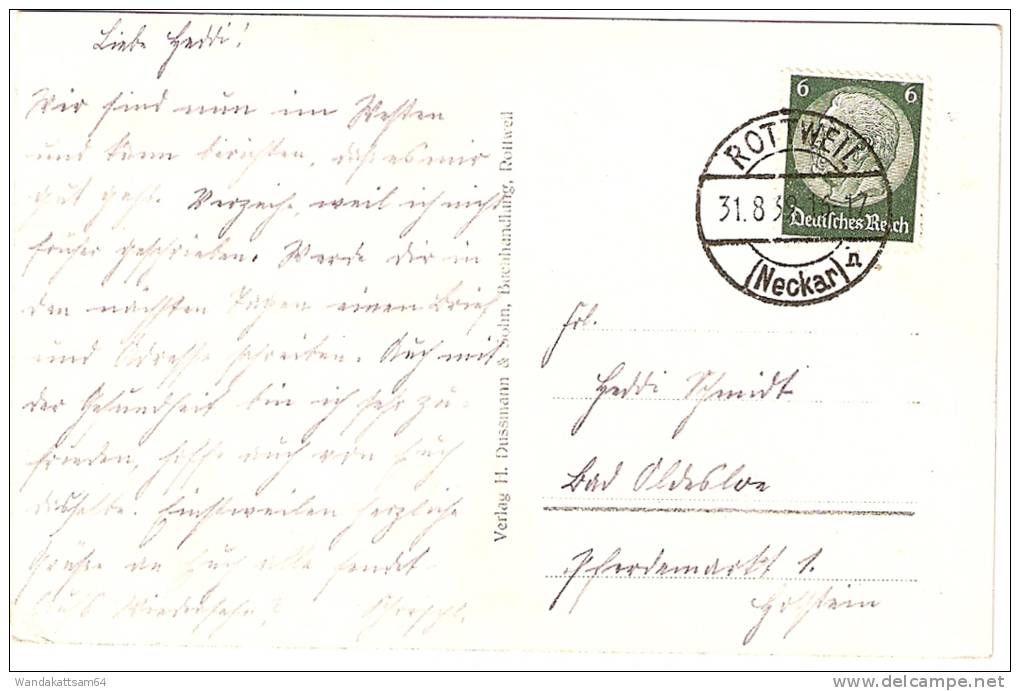 Liebe Heddi!
Wir sind nun im Westen
und kann berichten, daß es mir
gut geht. Verzeihe, weil ich nicht
früher geschrieben. Werde dir in
den nächsten Tagen einen Brief
und Adresse schreiben. Auch mit
der Gesundheit bin ich sehr zu-
frieden, hoffe auch von Euch
dasselbe. Einstweilen herzliche
Grüße an Euch alle sendet
Wiedersehn!
Verlag H. Dussmann & Sohn, Buchhandlung, Rottweil
6 6
Deutsches Reich
ROTTWEIL
31.8.39 16-17
(Neckar) n
Frl.
Heddi Schmidt
Bad Oldesloe
Pferdemarkt 1.
Holstein
Wandakattsam64
delcampe.net